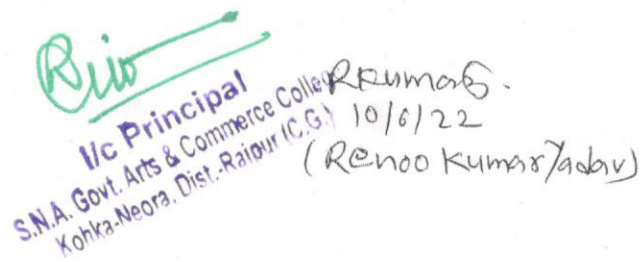 I/c Principal
S.N.A. Govt. Arts & Commerce College
Kohka-Neora, Dist.-Raipur (C.G.)
10/6/22
(Renoo Kumar Yadav)